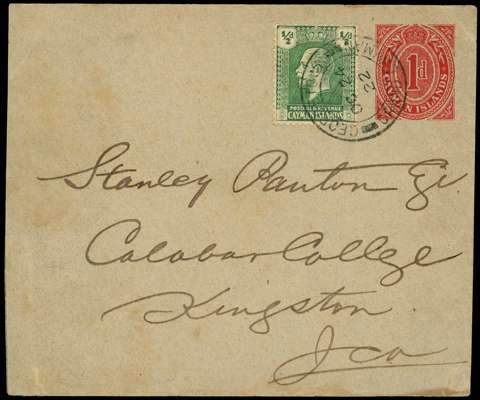 ½ ½
POSTAGE & REVENUE
CAYMAN ISLANDS
1d
CAYMAN ISLANDS
GEORG
MA 22
30
Stanley Panton Esq.
Calabar College
Kingston
Jca